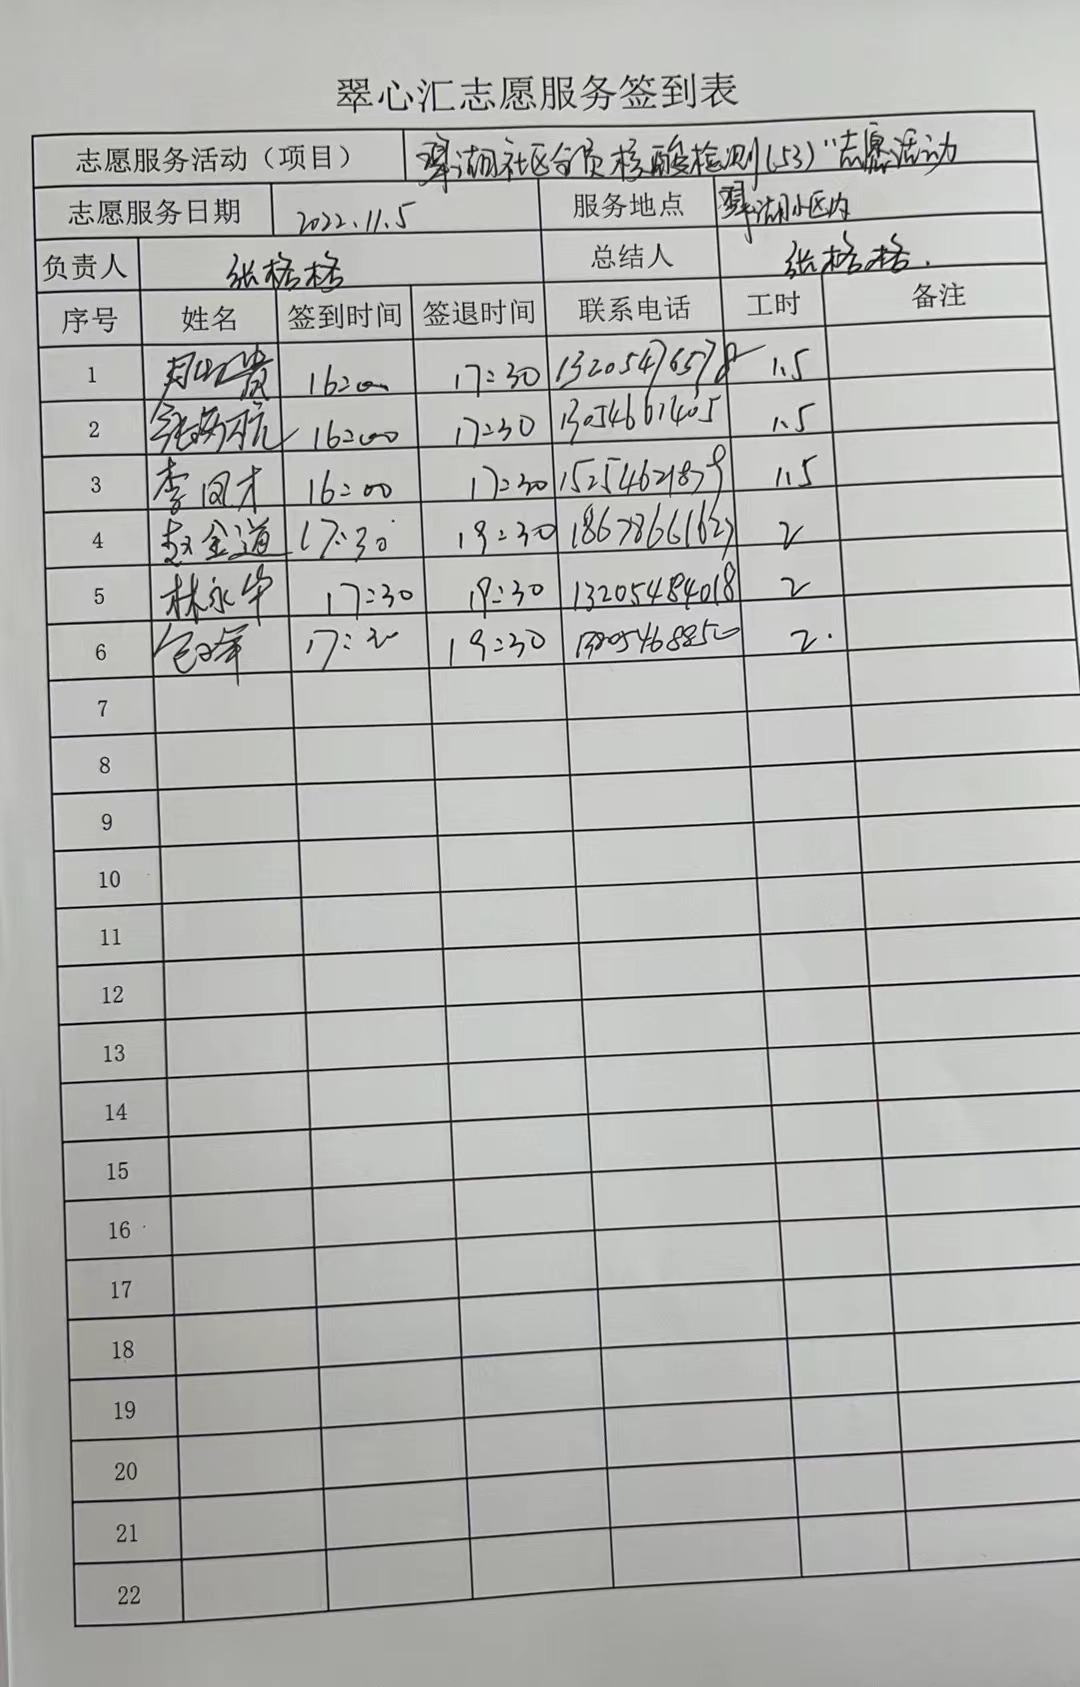 翠心汇志愿服务签到表
志愿服务活动（项目） 翠湖社区全员核酸检测(53)"志愿活动
志愿服务日期 2022.11.5 服务地点 翠湖小区内
负责人 张格格 总结人 张格格.
序号 姓名 签到时间 签退时间 联系电话 工时 备注
1 16:00 17:30 13205476578 1.5
2 16:00 17:30 13054661405 1.5
3 李凤才 16:00 17:30 15254621879 1.5
4 赵金道 17:30 19:30 2
5 林永华 17:30 19:30 13205484018 2
6 17:30 19:30 2.
7
8
9
10
11
12
13
14
15
16
17
18
19
20
21
22